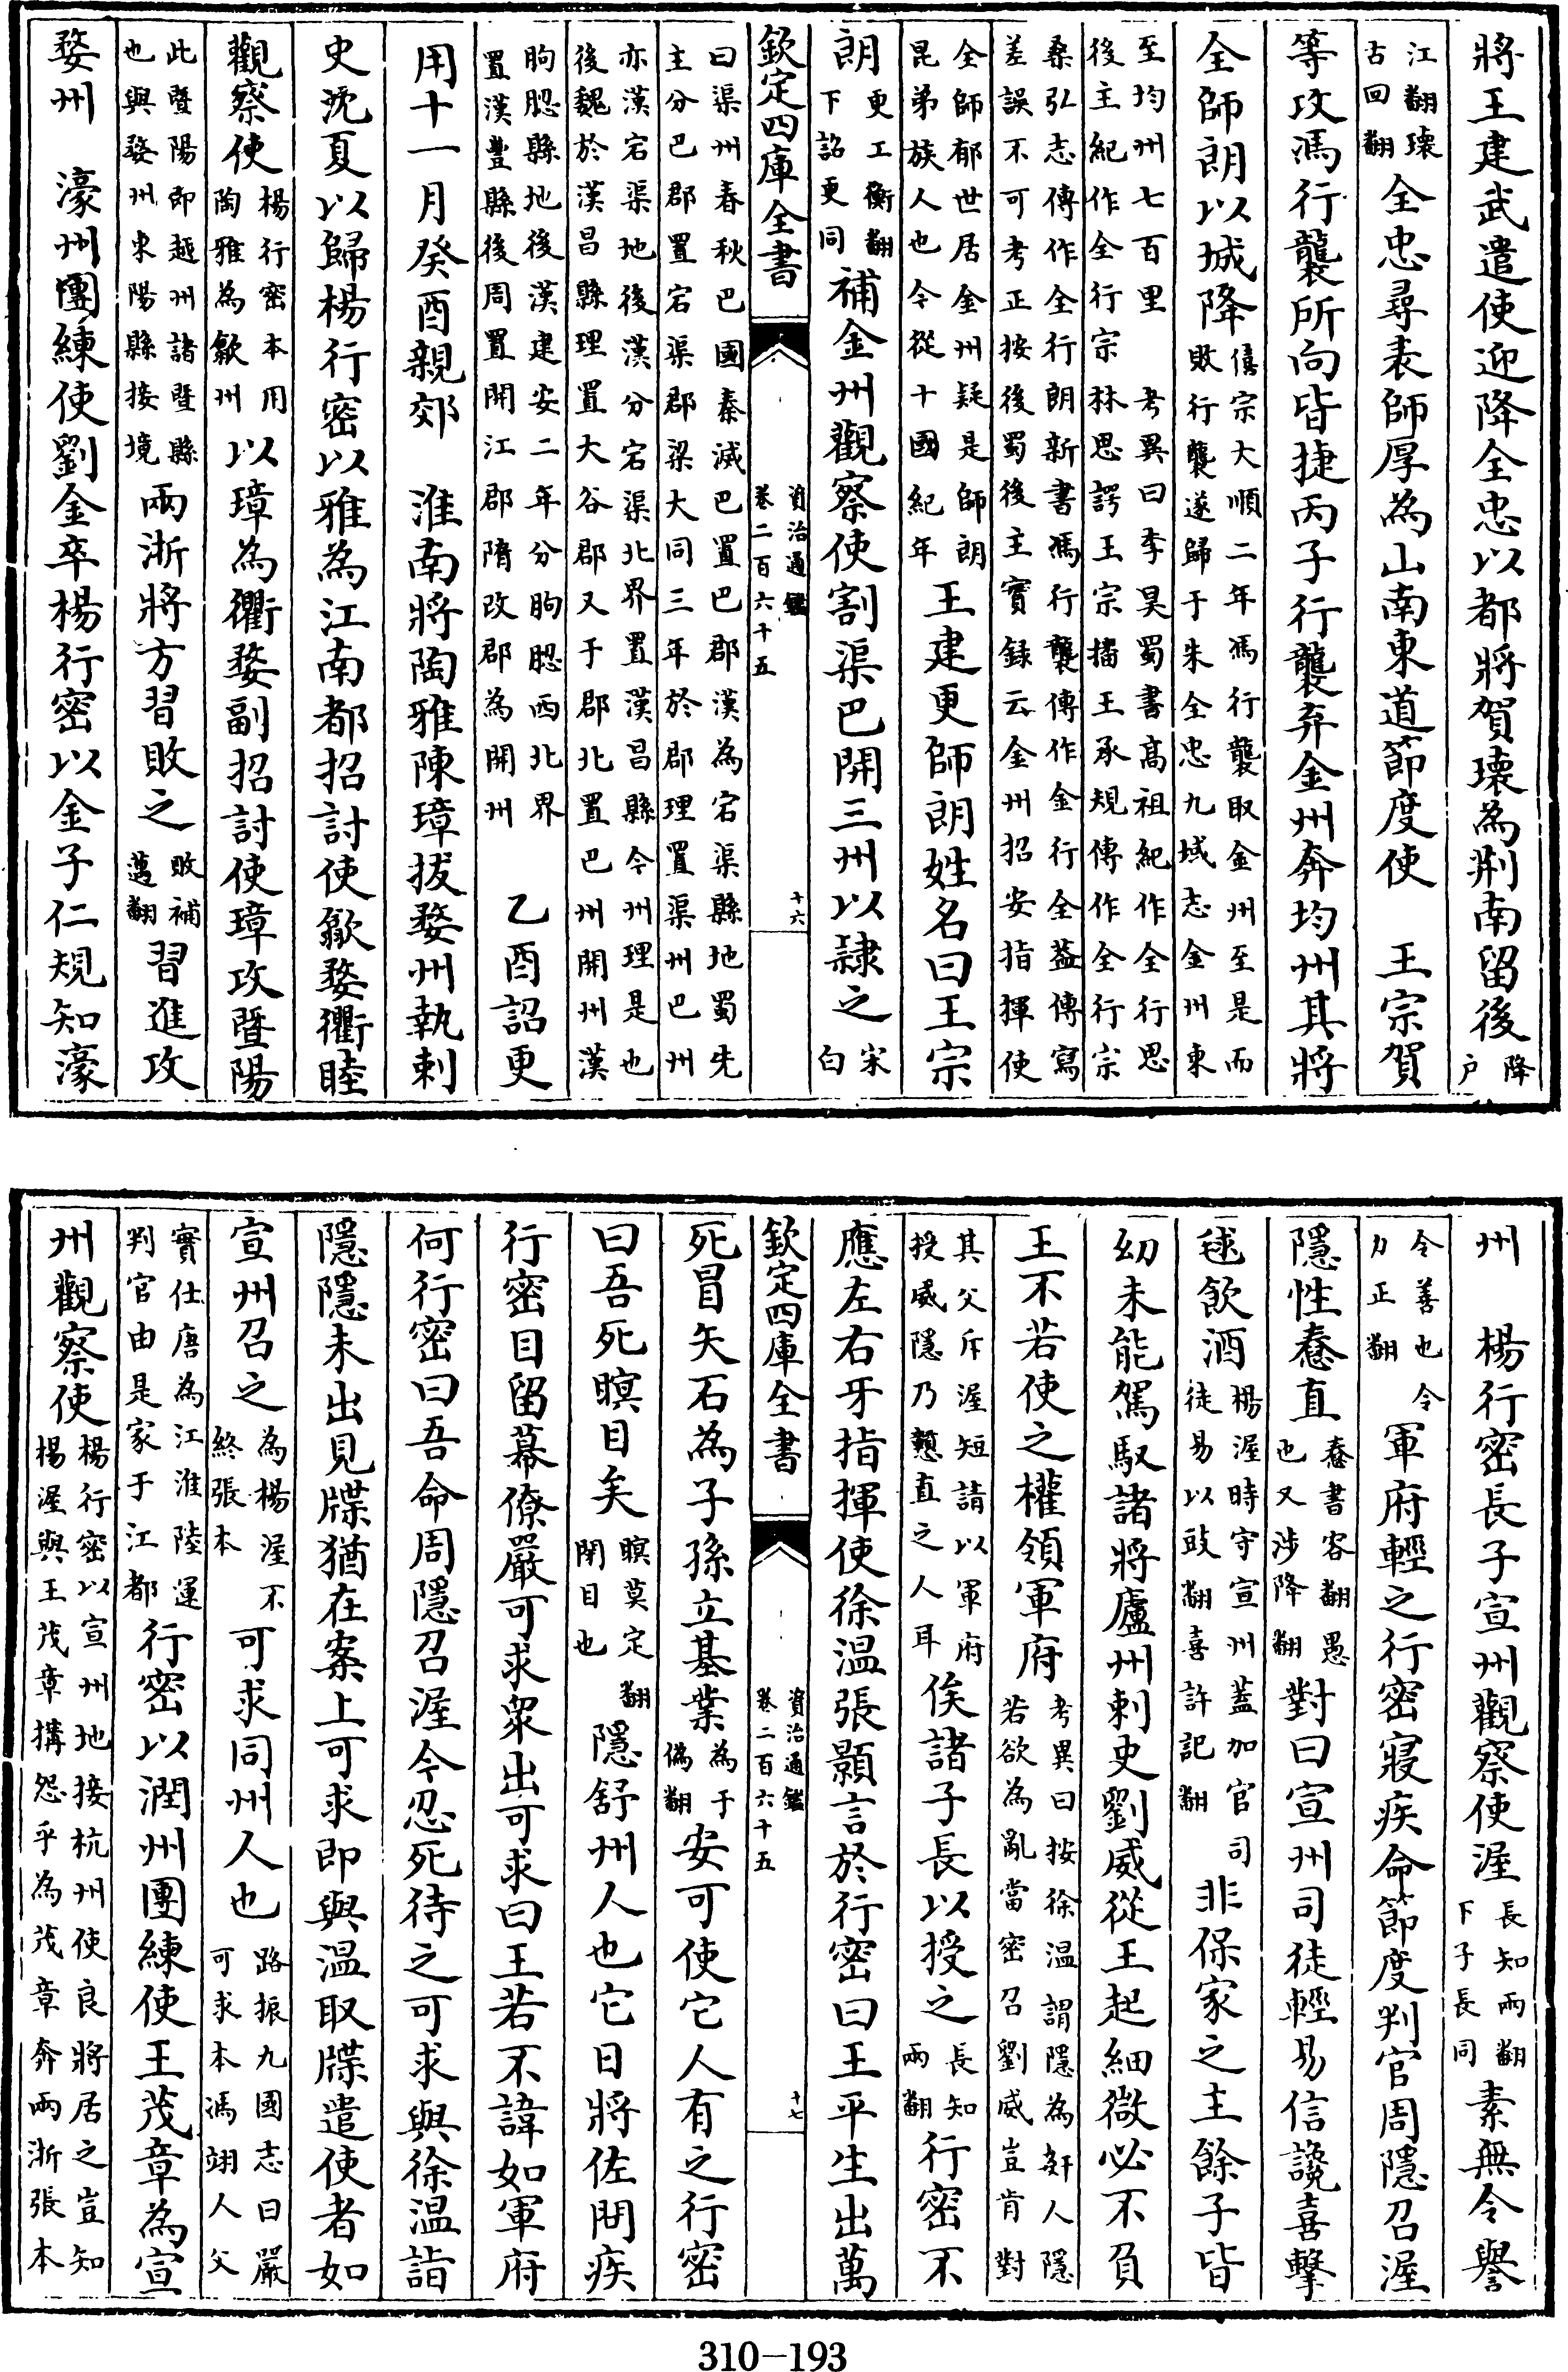 將王建武遣使迎降全忠以都將賀瓌為荆南留後降户
江翻瓌古回翻全忠尋表師厚為山南東道節度使　王宗賀
等攻馮行襲所向皆捷丙子行襲弃金州奔均州其將
全師朗以城降僖宗大順二年馮行襲取金州至是而敗行襲遂歸于朱全忠九域志金州東
至均州七百里　考異曰李昊蜀書高祖紀作全行思後主紀作全行宗林思諤王宗播王承規傳作全行宗
桑弘志傳作全行朗新書馮行襲傳作金行全葢傳寫差誤不可考正按後蜀後主實録云金州招安指揮使
全師郁世居金州疑是師朗昆弟族人也今從十國紀年　王建更師朗姓名曰王宗
朗更工衡翻下詔更同補金州觀察使割渠巴開三州以隸之宋白
欽定四庫全書　資治通鑑卷二百六十五　十六
曰渠州春秋巴國秦滅巴置巴郡漢為宕渠縣地蜀先主分巴郡置宕渠郡梁大同三年於郡理置渠州巴州
亦漢宕渠地後漢分宕渠北界置漢昌縣今州理是也後魏於漢昌縣理置大谷郡又于郡北置巴州開州漢
朐䏰縣地後漢建安二年分朐䏰西北界置漢豐縣後周置開江郡隋改郡為開州　乙酉詔更
用十一月癸酉親郊　淮南將陶雅陳璋拔婺州執刺
史沈夏以歸楊行密以雅為江南都招討使歙婺衢睦
觀察使楊行密本用陶雅為歙州以璋為衢婺副招討使璋攻暨陽
此暨陽即越州諸暨縣也與婺州東陽縣接境兩浙將方習敗之敗補邁翻習進攻
婺州　濠州團練使劉金卒楊行密以金子仁規知濠
州　楊行密長子宣州觀察使渥長知兩翻下子長同素無令譽
令善也令力正翻　軍府輕之行密寢疾命節度判官周隱召渥
隱性惷直惷書容翻愚也又涉降翻對曰宣州司徒輕易信讒喜擊
毬飲酒楊渥時守宣州葢加官司徒易以豉翻喜許記翻　非保家之主餘子皆
幼未能駕馭諸將廬州刺史劉威從王起細微必不負
王不若使之權領軍府考異曰按徐温謂隱為奸人隱若欲為亂當密召劉威豈肯對
其父斥渥短請以軍府授威隱乃戇直之人耳俟諸子長以授之長知兩翻行密不
應左右牙指揮使徐温張顥言於行密曰王平生出萬
欽定四庫全書　資治通鑑卷二百六十五　十七
死冒矢石為子孫立基業為于偽翻安可使它人有之行密
曰吾死瞑目矣瞑莫定翻閉目也隱舒州人也它日將佐問疾
行密目留幕僚嚴可求衆出可求曰王若不諱如軍府
何行密曰吾命周隱召渥今忍死待之可求與徐温詣
隱隱未出見牒猶在案上可求即與温取牒遣使者如
宣州召之為楊渥不終張本　可求同州人也路振九國志曰嚴可求本馮翊人父
實仕唐為江淮陸運判官由是家于江都行密以潤州團練使王茂章為宣
州觀察使楊行密以宣州地接杭州使良將居之豈知楊渥與王茂章搆怨乎為茂章奔兩浙張本
310-193